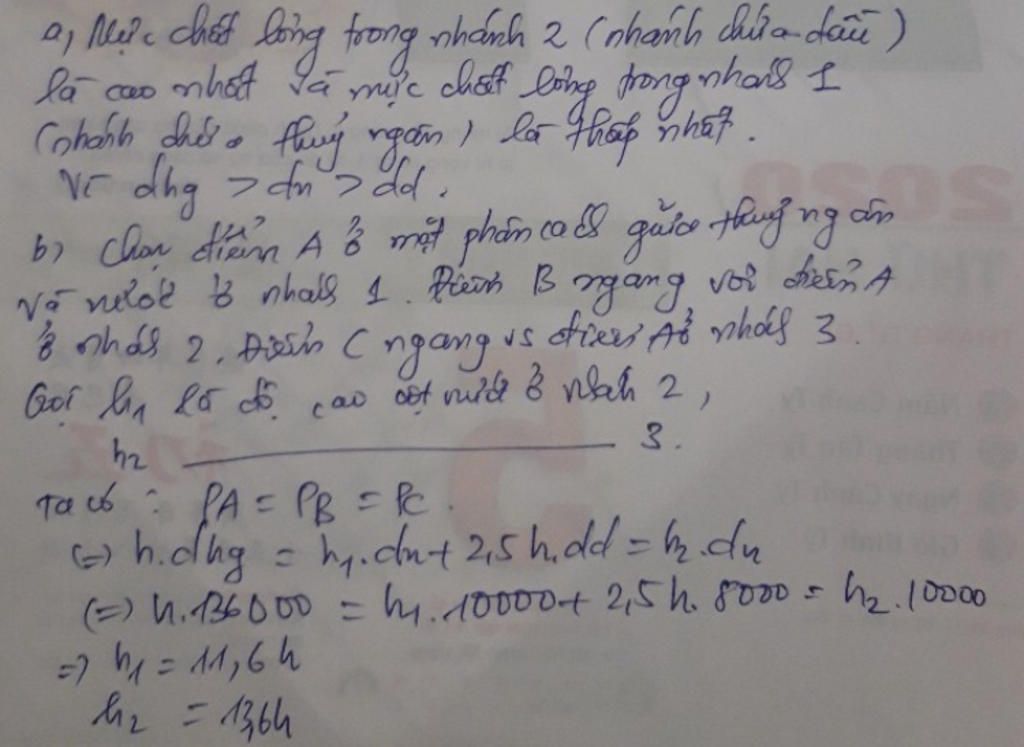 a, Mực chất lỏng trong nhánh 2 (nhánh chứa dầu)
là cao nhất và mực chất lỏng trong nhánh 1
(nhánh chứa thuỷ ngân) là thấp nhất.
Vì dhg > dn > dd.
b) Chọn điểm A ở mặt phân cách giữa thuỷ ngân
và nước ở nhánh 1. Điểm B ngang với điểm A
ở nhánh 2. Điểm C ngang vs điểm A ở nhánh 3.
Gọi h1 là độ cao cột nước ở nhánh 2,
h2 ———————— 3.
Ta có: PA = PB = PC.
(=) h.dhg = h1.dn + 2,5h.dd = h2.dn
(=) h.136000 = h1.10000 + 2,5h.8000 = h2.10000
=) h1 = 11,6h
h2 = 13,6h
2020
Năm Canh Tý
Ngày Canh Tý
Giờ Bính Tý